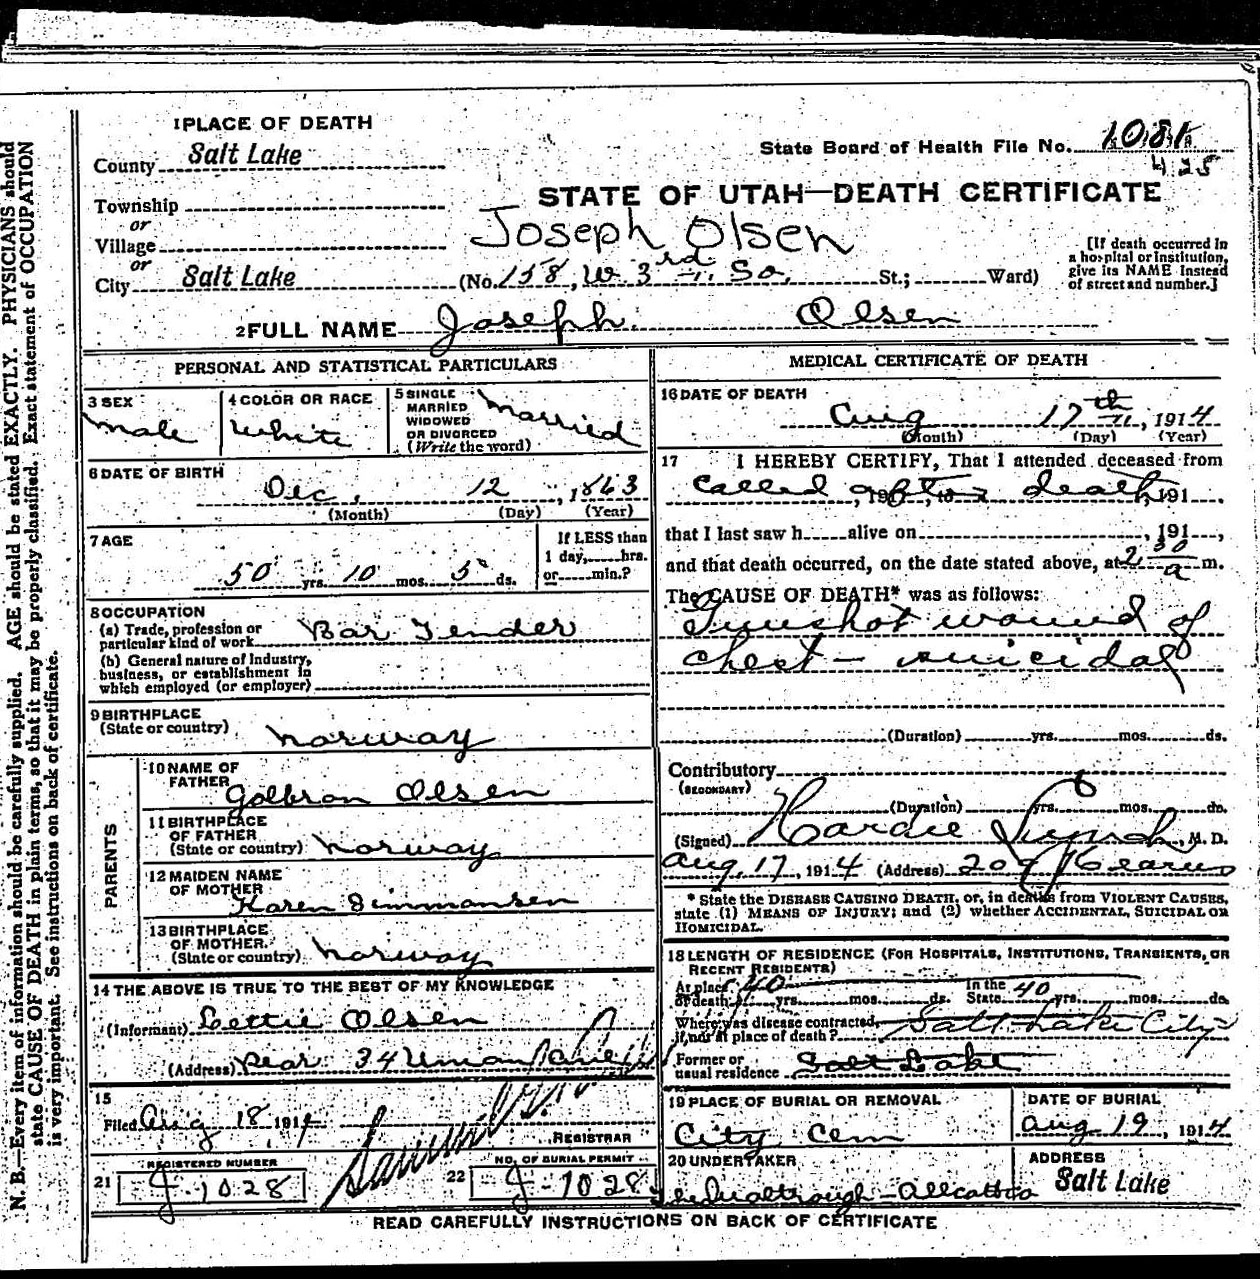 1 PLACE OF DEATH
County Salt Lake
State Board of Health File No. 1081
425
Township
or
Village
or
City Salt Lake
STATE OF UTAH—DEATH CERTIFICATE
Joseph Olsen
(No. 158, W. 3rd So. St.; Ward)
[If death occurred in
a hospital or institution,
give its NAME instead
of street and number.]
2 FULL NAME Joseph Olsen
PERSONAL AND STATISTICAL PARTICULARS
3 SEX
Male
4 COLOR OR RACE
White
5 SINGLE
MARRIED
WIDOWED
OR DIVORCED
(Write the word)
Married
6 DATE OF BIRTH
Dec. 12, 1863
(Month) (Day) (Year)
7 AGE
50 yrs. 10 mos. 5 ds.
If LESS than
1 day, hrs.
or min.?
8 OCCUPATION
(a) Trade, profession or
particular kind of work Bar Tender
(b) General nature of Industry,
business, or establishment in
which employed (or employer)
9 BIRTHPLACE
(State or country) Norway
PARENTS
10 NAME OF
FATHER Golbran Olsen
11 BIRTHPLACE
OF FATHER
(State or country) Norway
12 MAIDEN NAME
OF MOTHER
Karen Simmonsen
13 BIRTHPLACE
OF MOTHER
(State or country) Norway
14 THE ABOVE IS TRUE TO THE BEST OF MY KNOWLEDGE
(Informant) Lettie Olsen
(Address) Rear 34
15
Filed Aug 18 1914
REGISTRAR
21 REGISTERED NUMBER
J-1028
22 NO. OF BURIAL PERMIT
J-1028
MEDICAL CERTIFICATE OF DEATH
16 DATE OF DEATH
Aug 17th, 1914
(Month) (Day) (Year)
17 I HEREBY CERTIFY, That I attended deceased from
called after death, 191
that I last saw h alive on , 191 ,
and that death occurred, on the date stated above, at 2 30 a m.
The CAUSE OF DEATH* was as follows:
Gunshot wound of
chest - suicidal
(Duration) yrs. mos. ds.
Contributory
(SECONDARY)
(Duration) yrs. mos. ds.
(Signed) Hardie Lynch, M. D.
Aug. 17, 1914 (Address) 209 Kearns
* State the DISEASE CAUSING DEATH, or, in deaths from VIOLENT CAUSES,
state (1) MEANS OF INJURY; and (2) whether ACCIDENTAL, SUICIDAL OR
HOMICIDAL.
18 LENGTH OF RESIDENCE (FOR HOSPITALS, INSTITUTIONS, TRANSIENTS, OR
RECENT RESIDENTS)
At place
of death 40 yrs. mos. ds.
In the
State 40 yrs. mos. ds.
Where was disease contracted,
if not at place of death? Salt Lake City
Former or
usual residence Salt Lake
19 PLACE OF BURIAL OR REMOVAL
City Cem
DATE OF BURIAL
Aug 19, 1914
20 UNDERTAKER
ADDRESS
Salt Lake
READ CAREFULLY INSTRUCTIONS ON BACK OF CERTIFICATE
N. B.—Every item of information should be carefully supplied. AGE should be stated EXACTLY. PHYSICIANS should
state CAUSE OF DEATH in plain terms, so that it may be properly classified. Exact statement of OCCUPATION
is very important. See instructions on back of certificate.